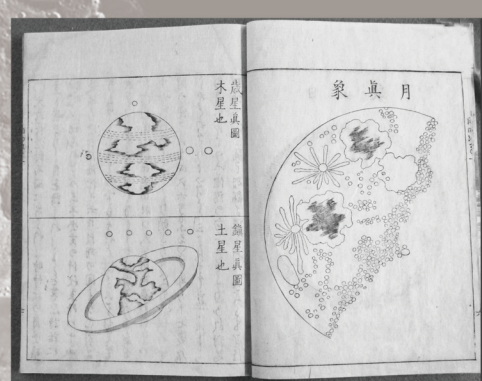 月眞象
歳星眞圖
木星也
鎮星眞圖
土星也